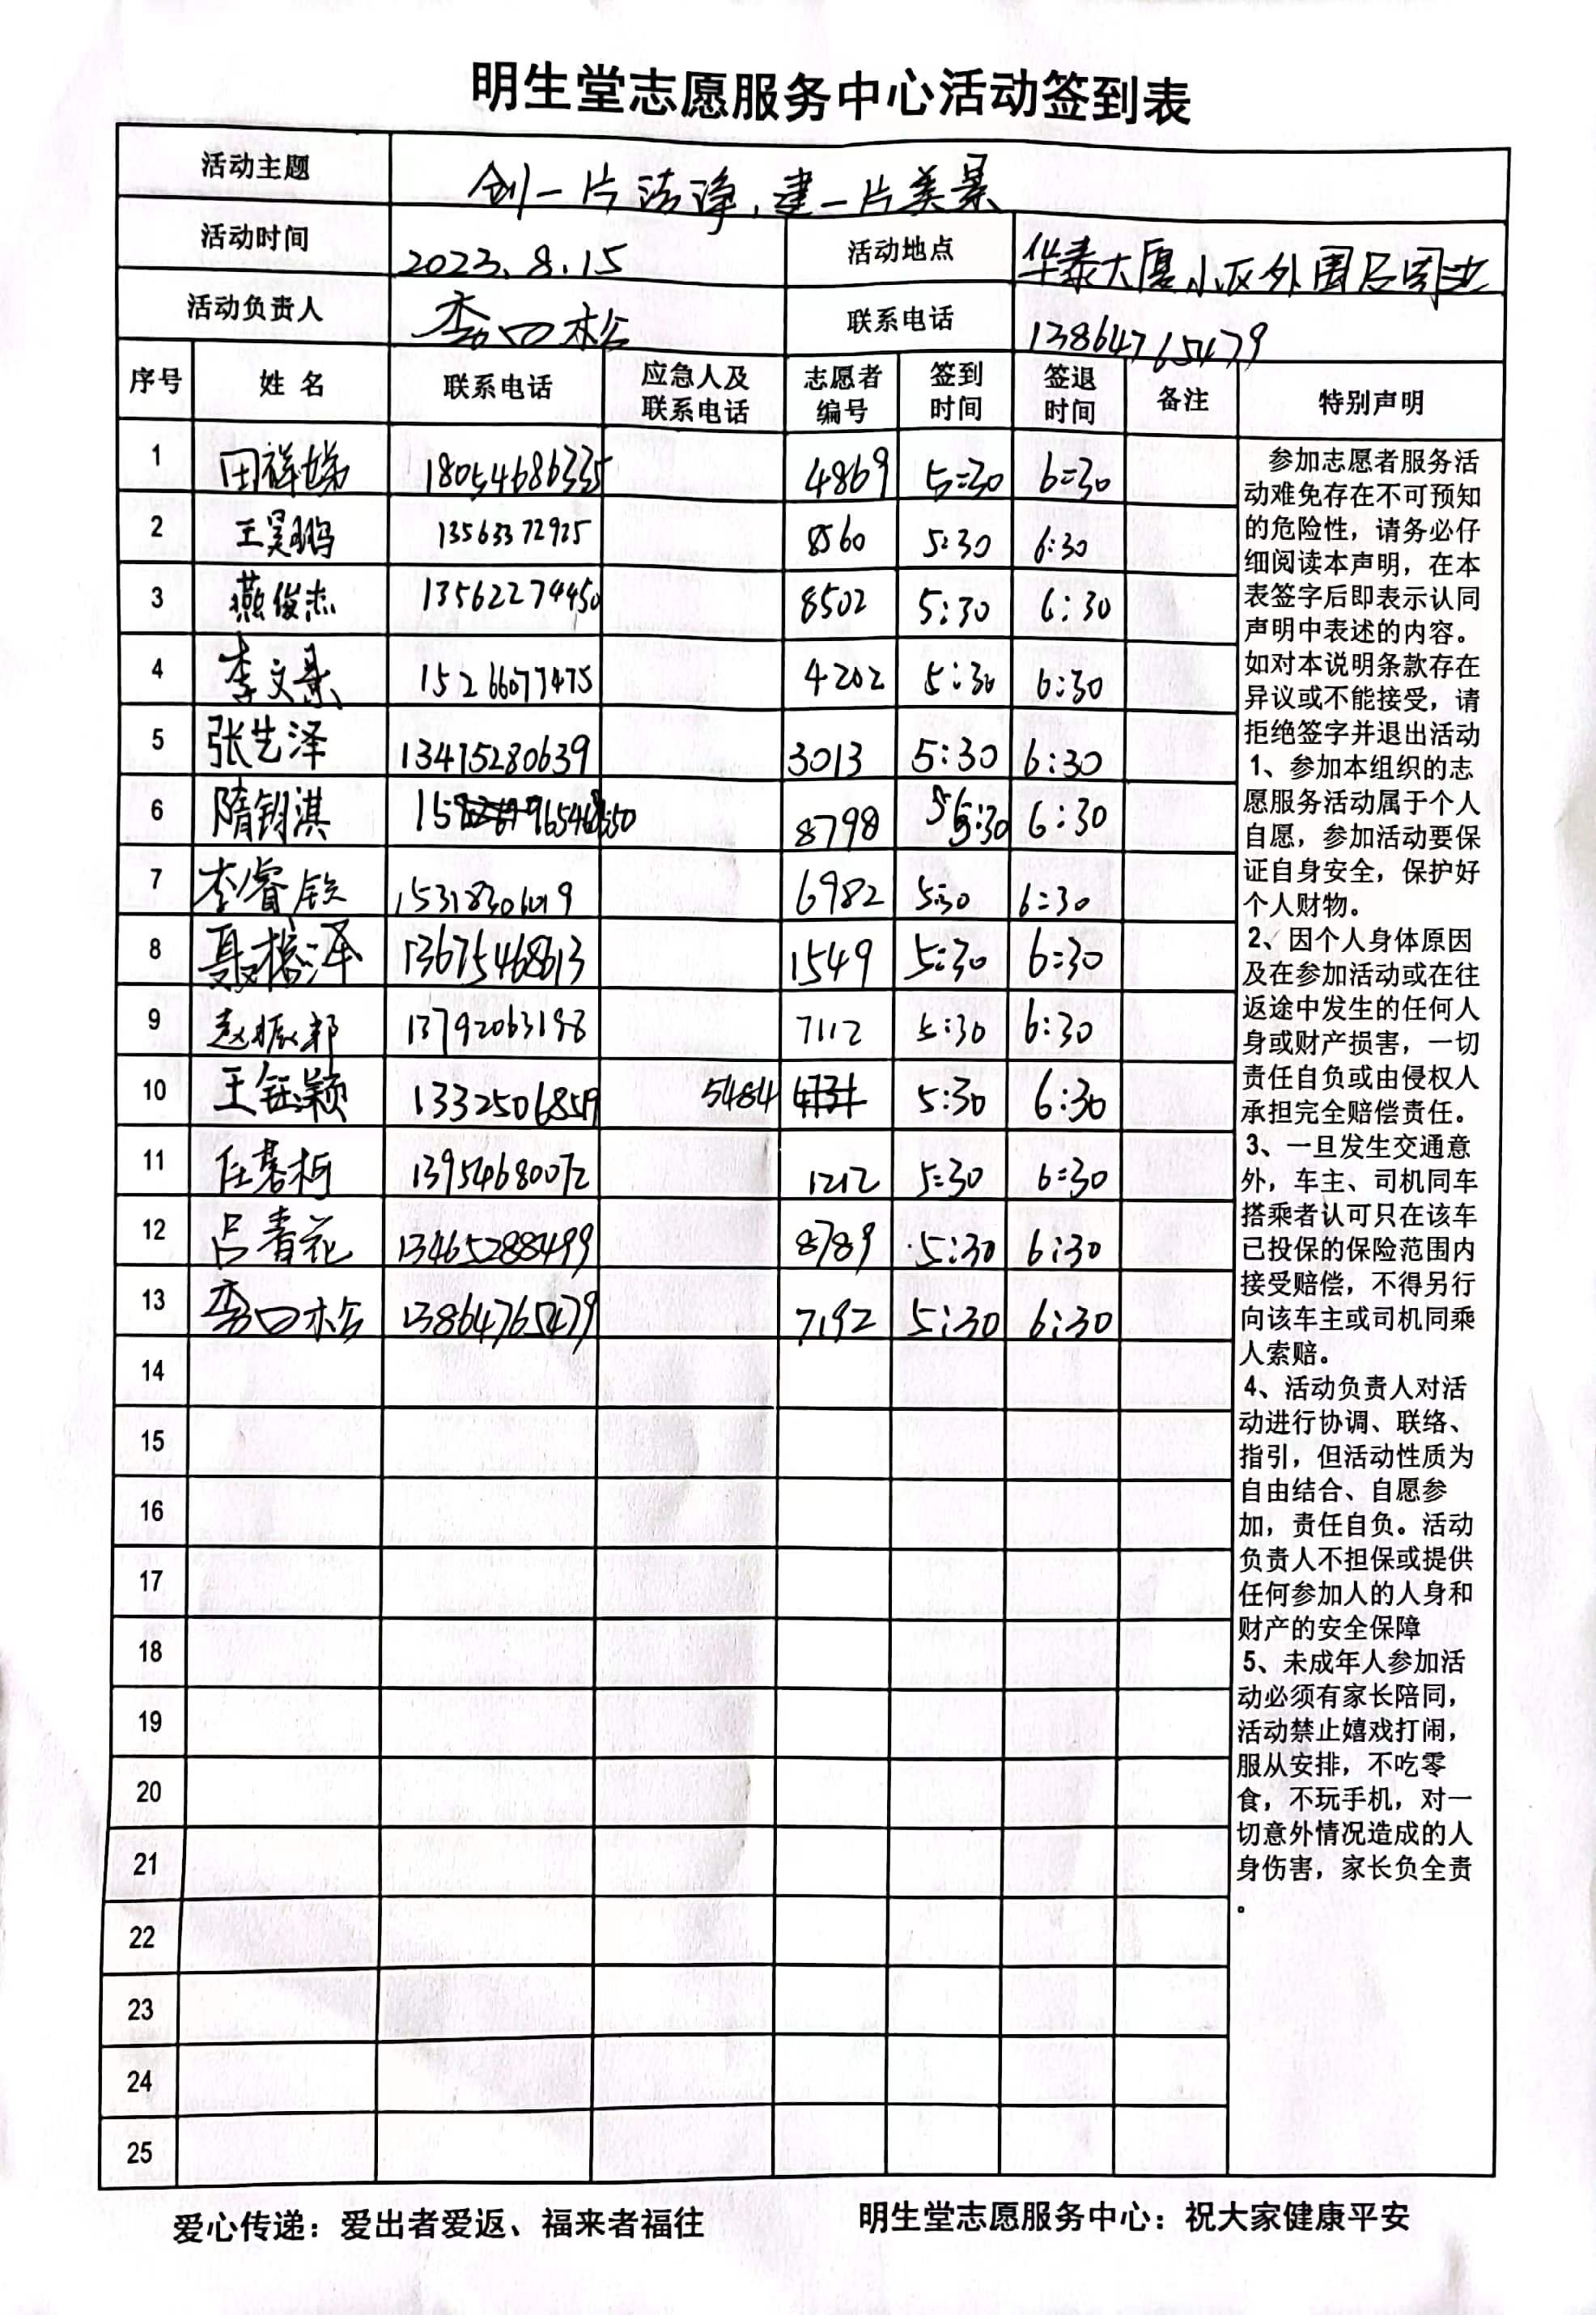 明生堂志愿服务中心活动签到表
活动主题 创一片洁净,建一片美景
活动时间 2023.8.15 活动地点 华泰大厦小区外围及周边
活动负责人 李口松 联系电话 13864765479
序号 姓名 联系电话 应急人及联系电话 志愿者编号 签到时间 签退时间 备注 特别声明
1 田祥娣 18054686335 4869 5:30 6:30
2 王昊鹏 13563372925 8560 5:30 6:30
3 燕俊杰 13562279450 8502 5:30 6:30
4 李文景 15266077475 4202 5:30 6:30
5 张艺泽 13475280639 3013 5:30 6:30
6 隋钥淇 8798 5:30 6:30
7 李睿 6982 5:30 6:30
8 聂 泽 13675468613 1549 5:30 6:30
9 赵振邦 13792063198 7112 5:30 6:30
10 王钰颖 13325068519 5484 5:30 6:30
11 任茗柯 13954680072 1212 5:30 6:30
12 吕青花 13465288499 8789 5:30 6:30
13 李口松 13864765479 7192 5:30 6:30
14
15
16
17
18
19
20
21
22
23
24
25
参加志愿者服务活
动难免存在不可预知
的危险性，请务必仔
细阅读本声明，在本
表签字后即表示认同
声明中表述的内容。
如对本说明条款存在
异议或不能接受，请
拒绝签字并退出活动
1、参加本组织的志
愿服务活动属于个人
自愿，参加活动要保
证自身安全，保护好
个人财物。
2、因个人身体原因
及在参加活动或在往
返途中发生的任何人
身或财产损害，一切
责任自负或由侵权人
承担完全赔偿责任。
3、一旦发生交通意
外，车主、司机同车
搭乘者认可只在该车
已投保的保险范围内
接受赔偿，不得另行
向该车主或司机同乘
人索赔。
4、活动负责人对活
动进行协调、联络、
指引，但活动性质为
自由结合、自愿参
加，责任自负。活动
负责人不担保或提供
任何参加人的人身和
财产的安全保障
5、未成年人参加活
动必须有家长陪同，
活动禁止嬉戏打闹，
服从安排，不吃零
食，不玩手机，对一
切意外情况造成的人
身伤害，家长负全责
。
爱心传递：爱出者爱返、福来者福往 明生堂志愿服务中心：祝大家健康平安